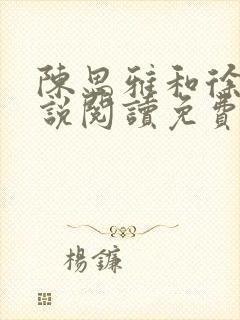 陳思雅和徐
說閱讀免費
楊鐮